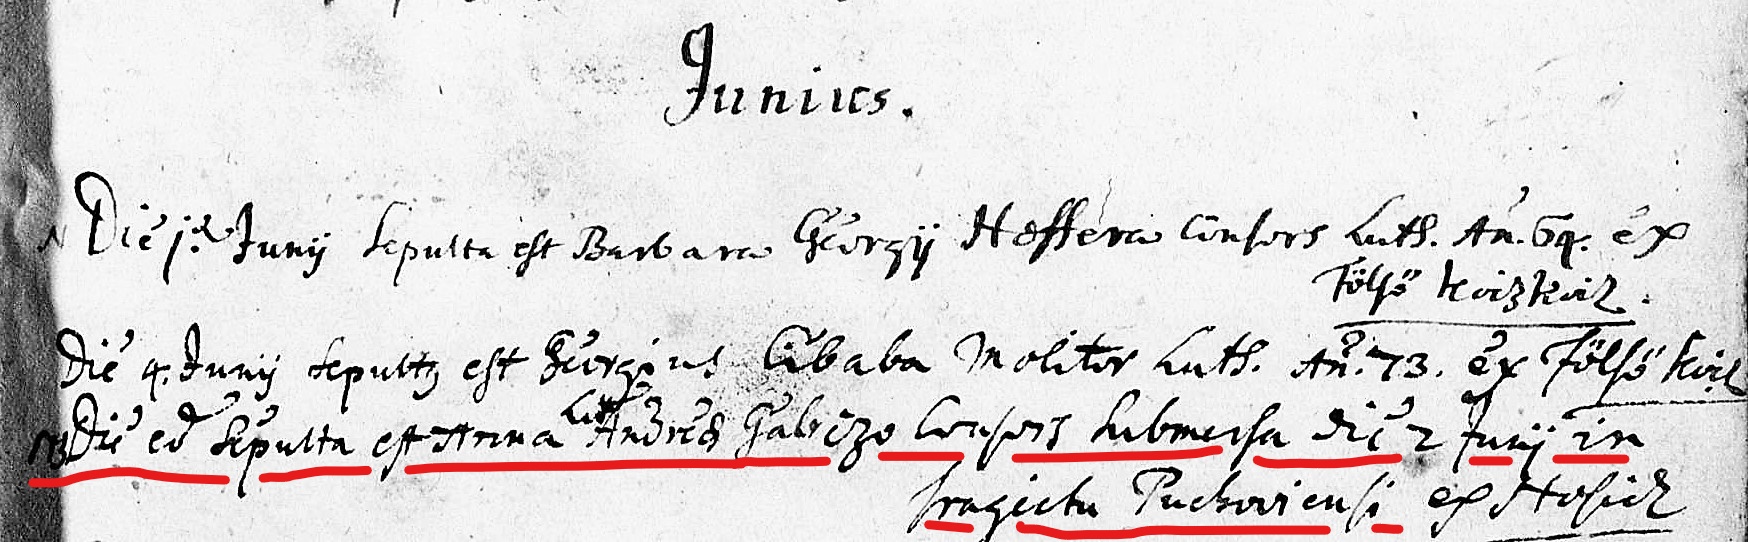 Junius.
Die 1. Junij sepulta est Barbara Georgij Heffera consors Luth. An. 64. ex
Fölsö
Die 4. Junij sepultg est Georgius Cibaba Molitor Luth. An. 73. ex Fölsö
Luth
NB Die ed sepulta est Anna Andreæ Gabrizo Consors submersa die 2 Junij in
tragictu Puchoviensi ex